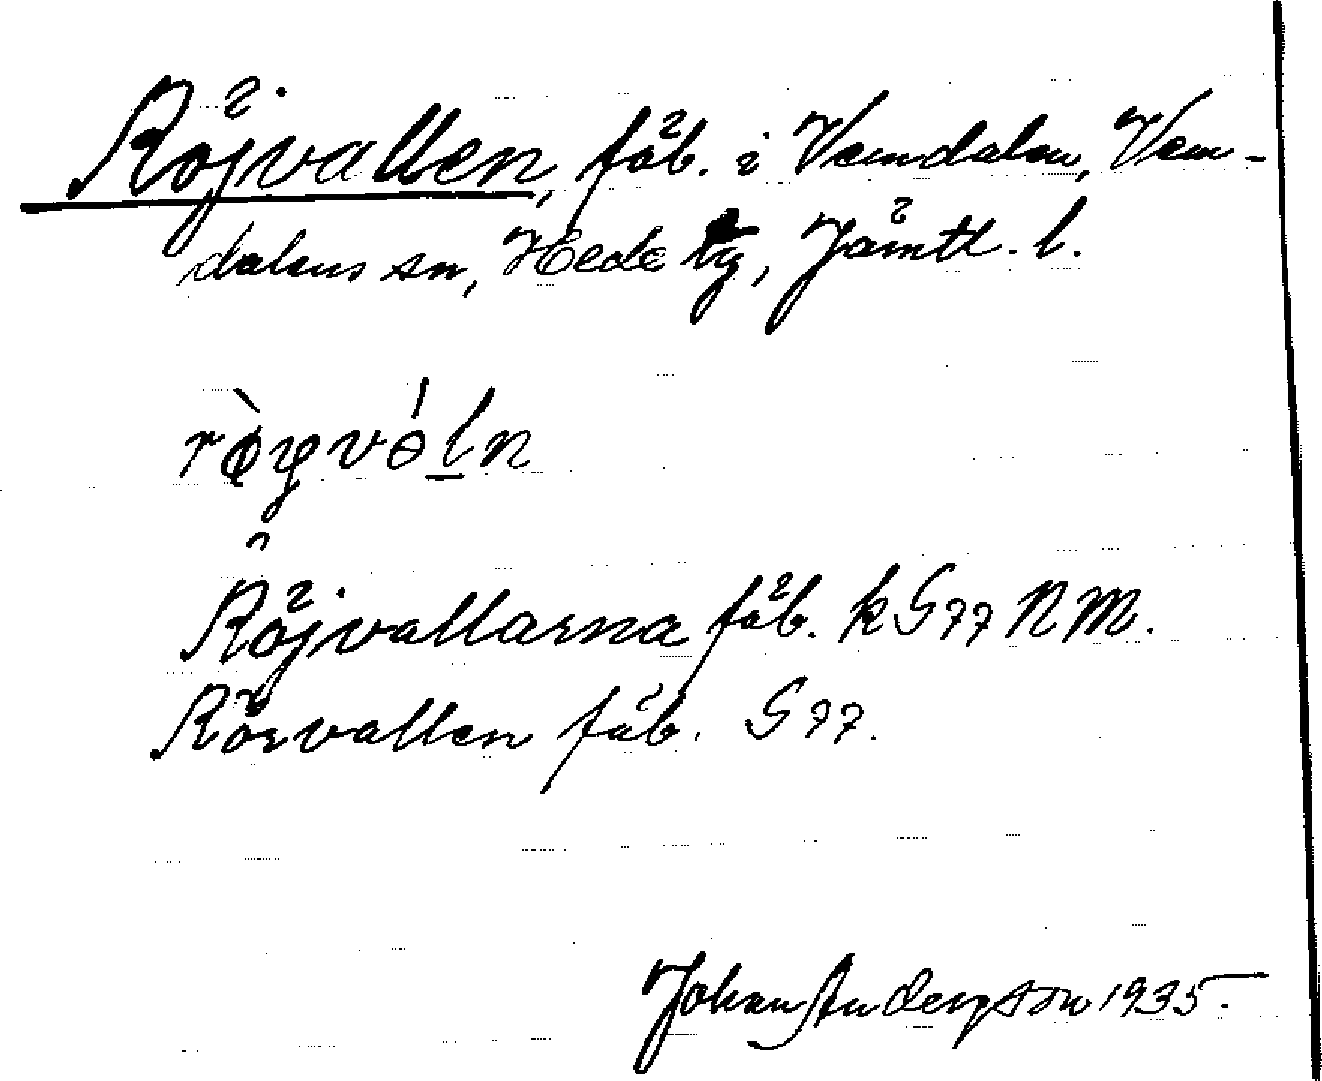 Röjvallen, fäb. i Vemdalen, Vem-
dalens sn, Hede tg, Jämtl. l.
Röjvallarna fäb. k G77 NM.
Rörvallen fäb. G77.
Johan Anderson 1935.